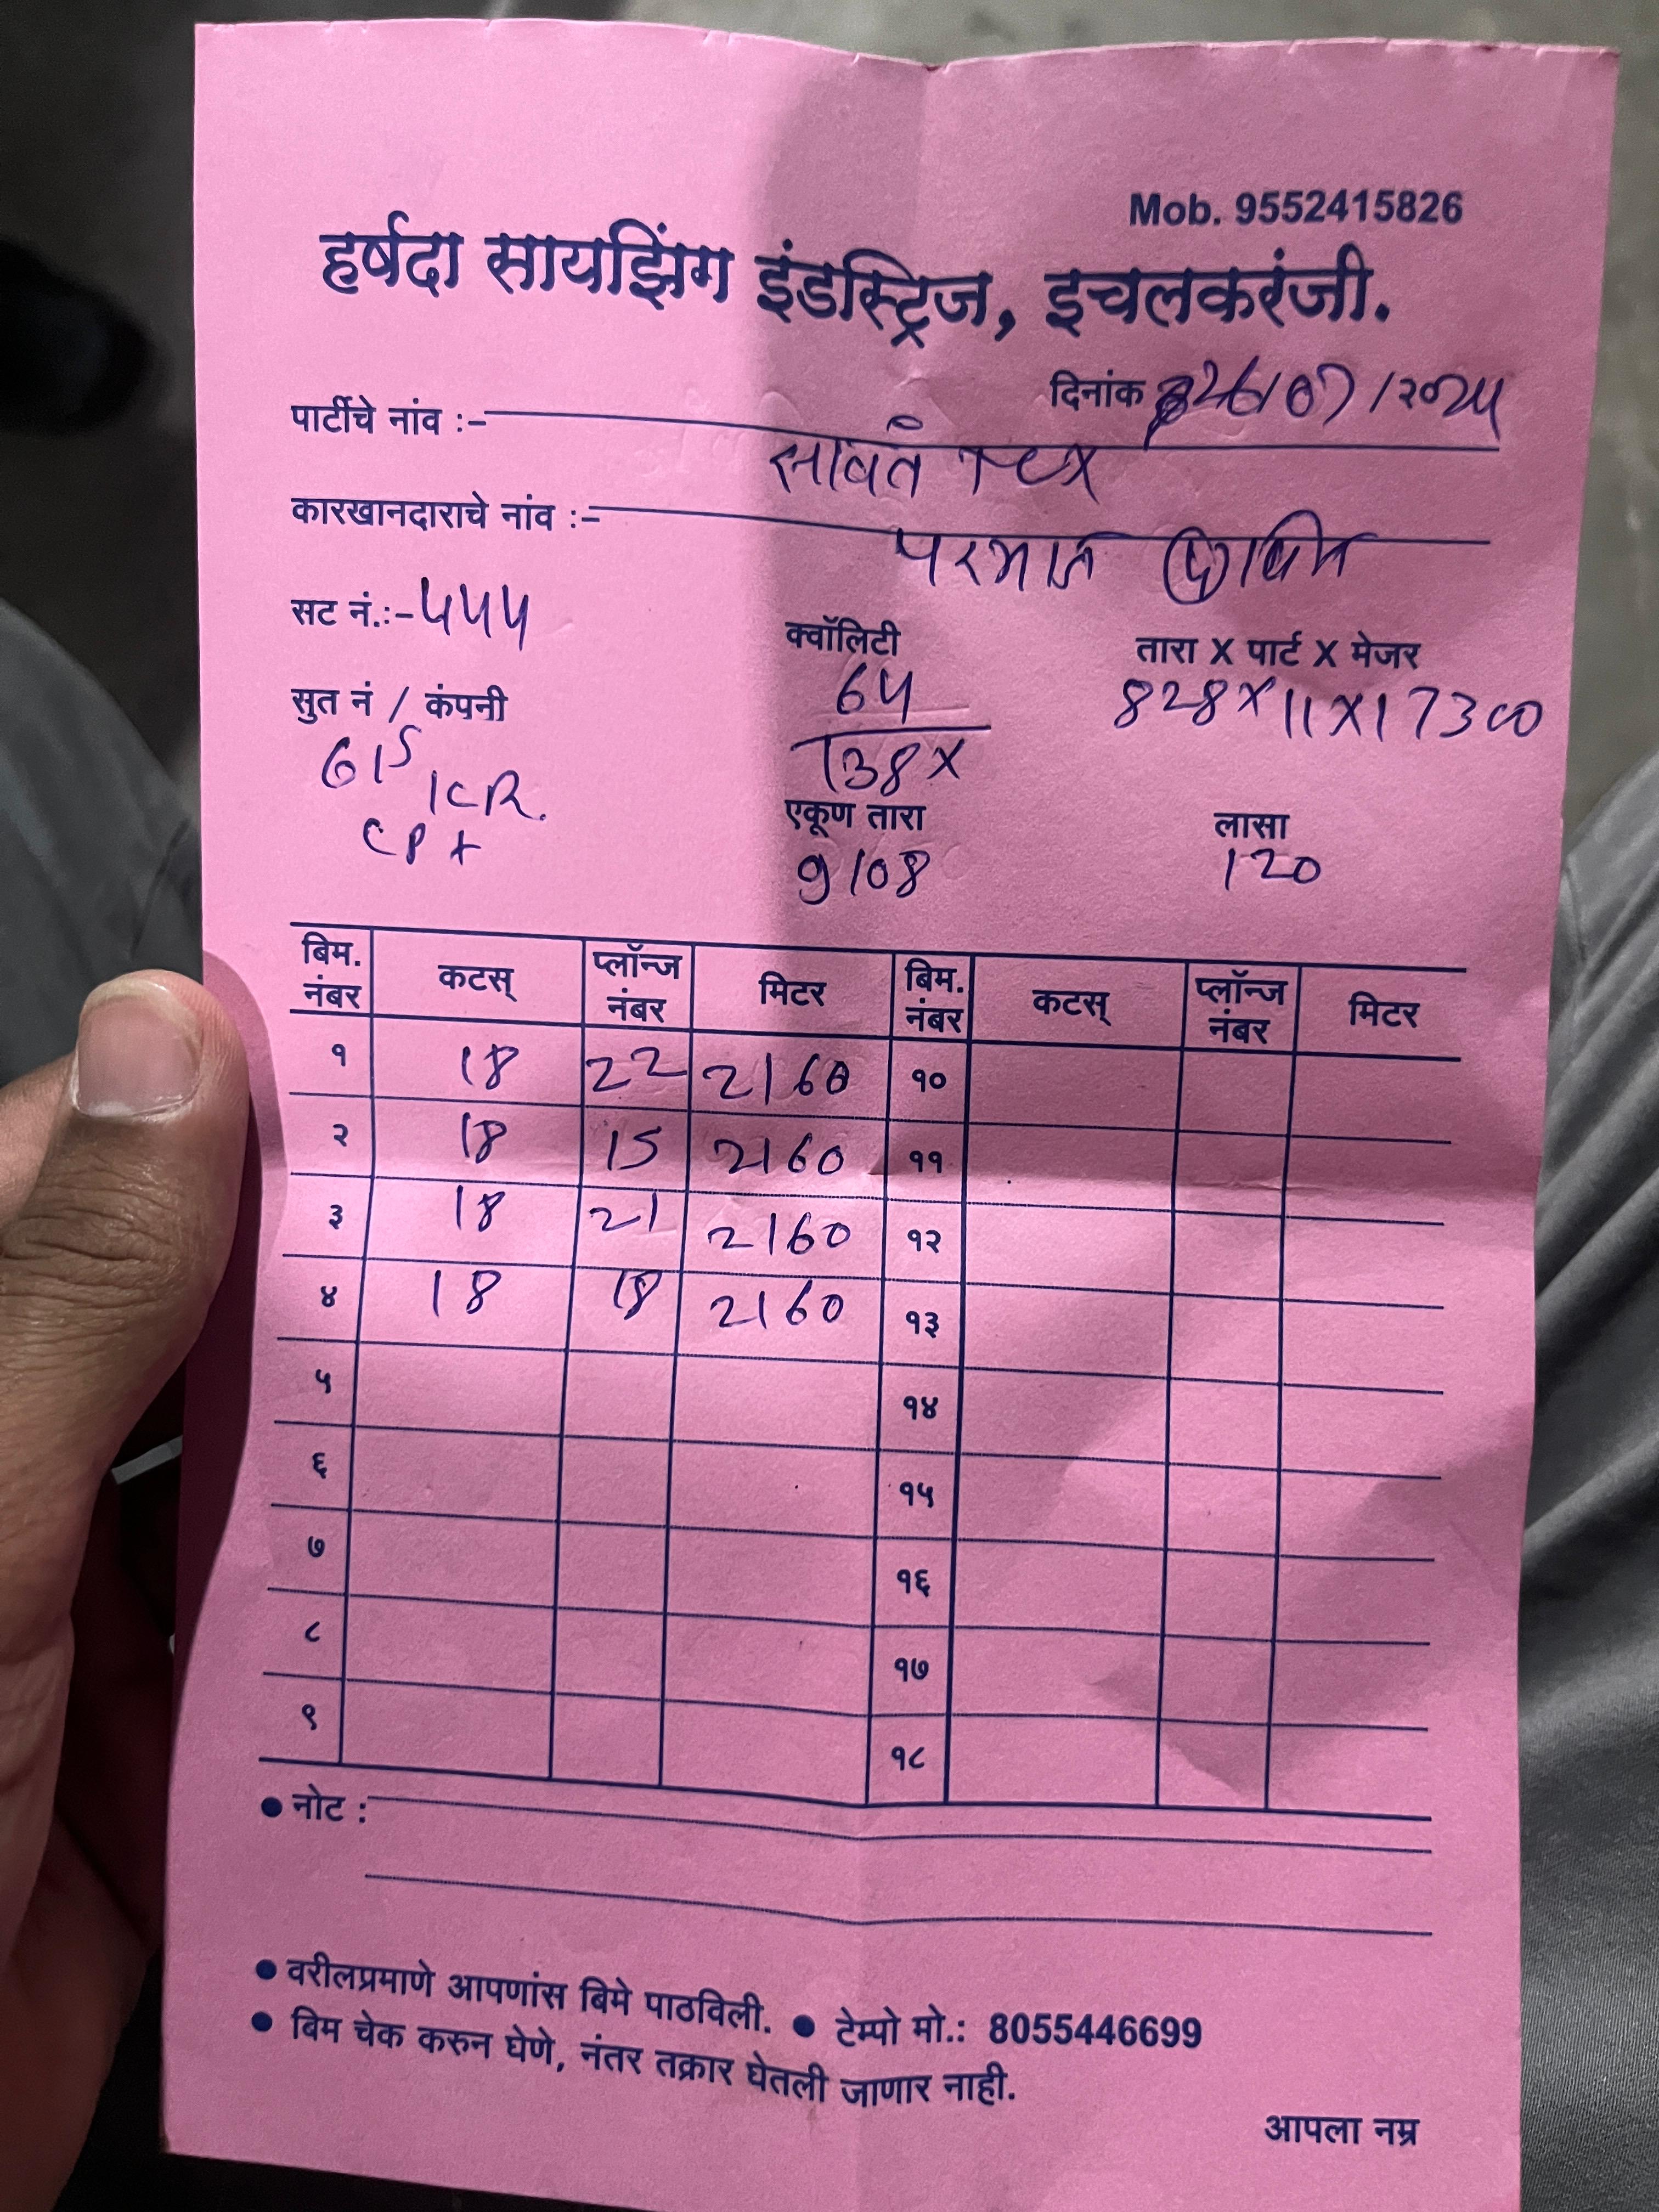 Mob. 9552415826
हर्षदा सायझिंग इंडस्ट्रिज, इचलकरंजी.
दिनांक 26/07/२०२५
पार्टीचे नांव :-
सावंत Tex
कारखानदाराचे नांव :-
सट नं.:- ५५५
क्वॉलिटी तारा X पार्ट X मेजर
64 828 X 11 X 17300
138 X
सुत नं / कंपनी
61S
ICR.
CPt
एकूण तारा लासा
9108 120
बिम. नंबर कटस् प्लॉन्ज नंबर मिटर बिम. नंबर कटस् प्लॉन्ज नंबर मिटर
१ 18 22 2160 १०
२ 18 15 2160 ११
३ 18 21 2160 १२
४ 18 18 2160 १३
५ १४
६ १५
७ १६
८ १७
९ १८
● नोट :
● वरीलप्रमाणे आपणांस बिमे पाठविली. ● टेम्पो मो.: 8055446699
● बिम चेक करुन घेणे, नंतर तक्रार घेतली जाणार नाही.
आपला नम्र